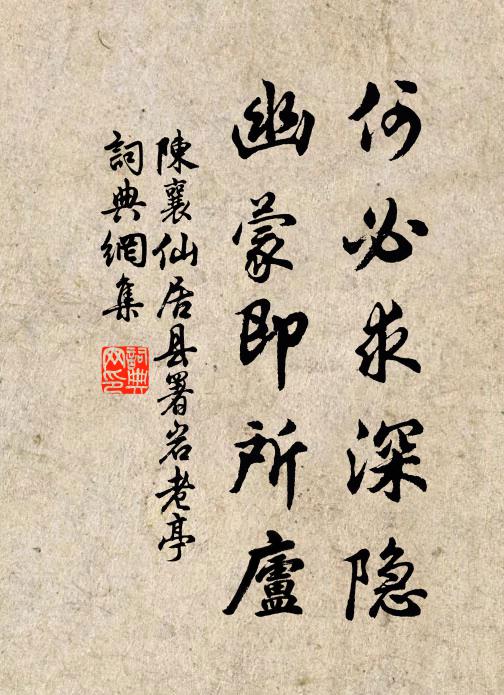 何必求深隐
幽蒙即所廬
陳襄仙居县署岩老亭
詞典網集
詞典
网印